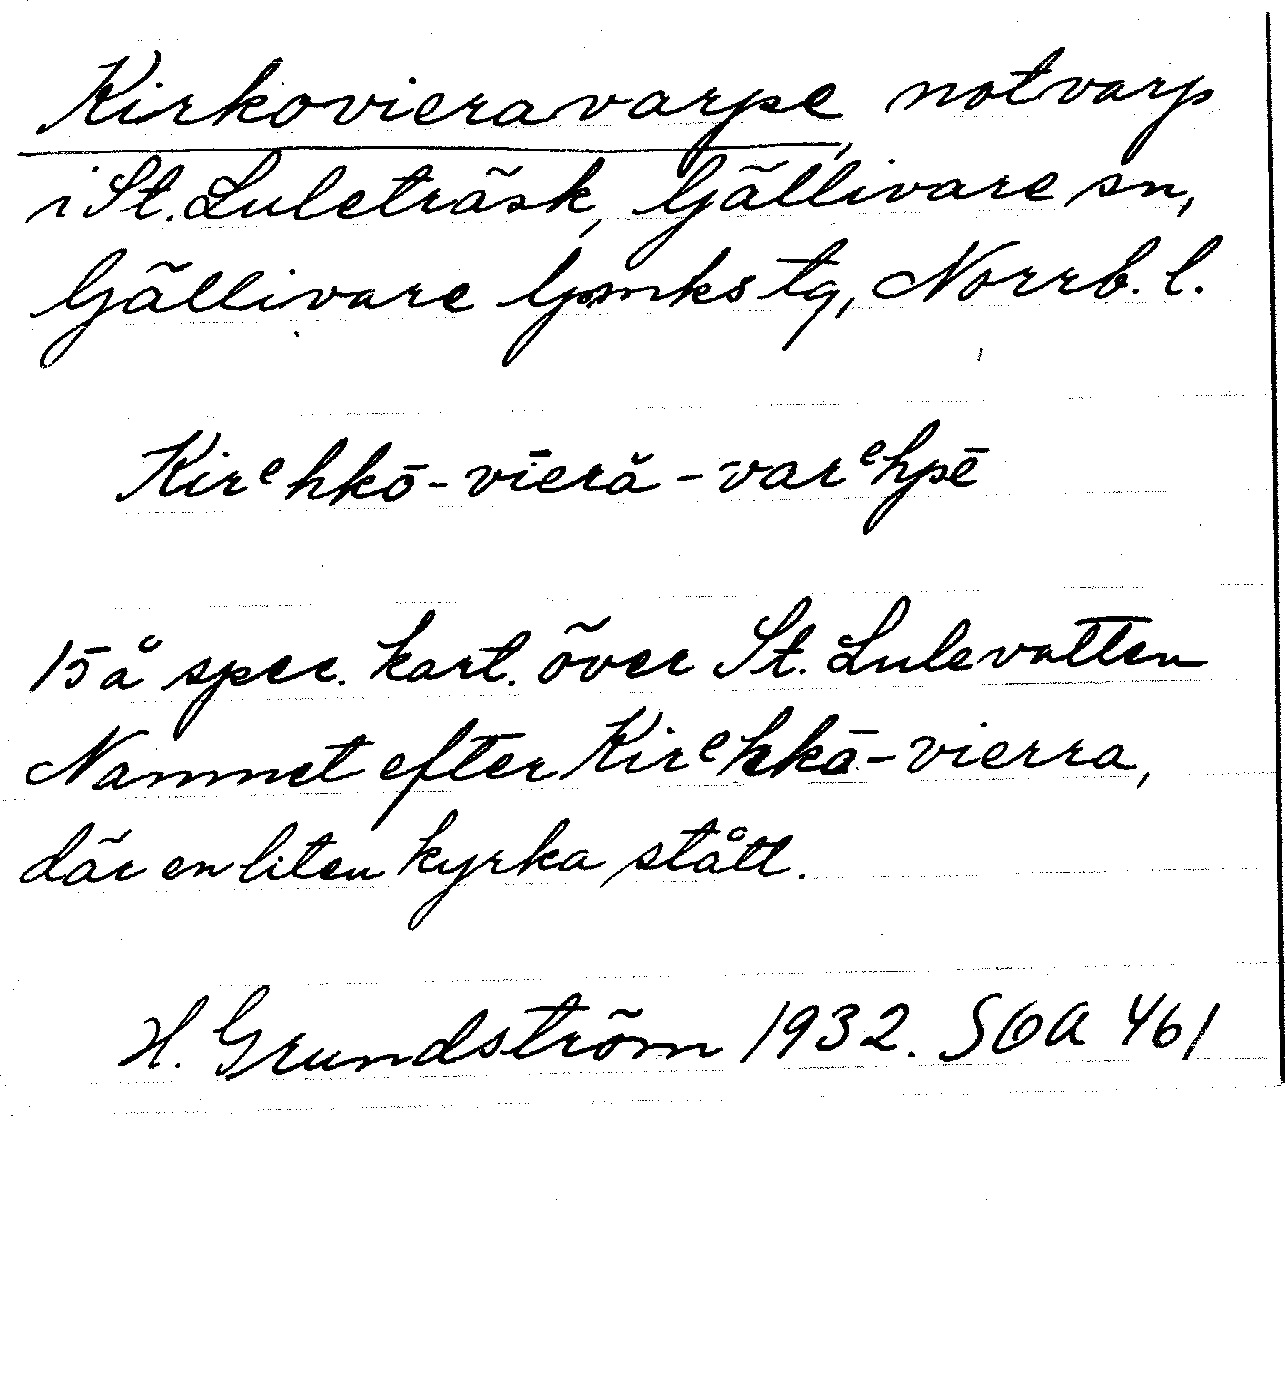 Kirkovieravarpe, notvarp
i St. Luleträsk, Gällivare sn,
Gällivare lpmks tg, Norrb. l.
Kirᵉhkō-vīeră-varᵉhpē
15 å spec. kart. över St. Lulevatten
Namnet efter Kirᵉhkā-vierra,
där en liten kyrka stått.
H. Grundström 1932. SOA 461